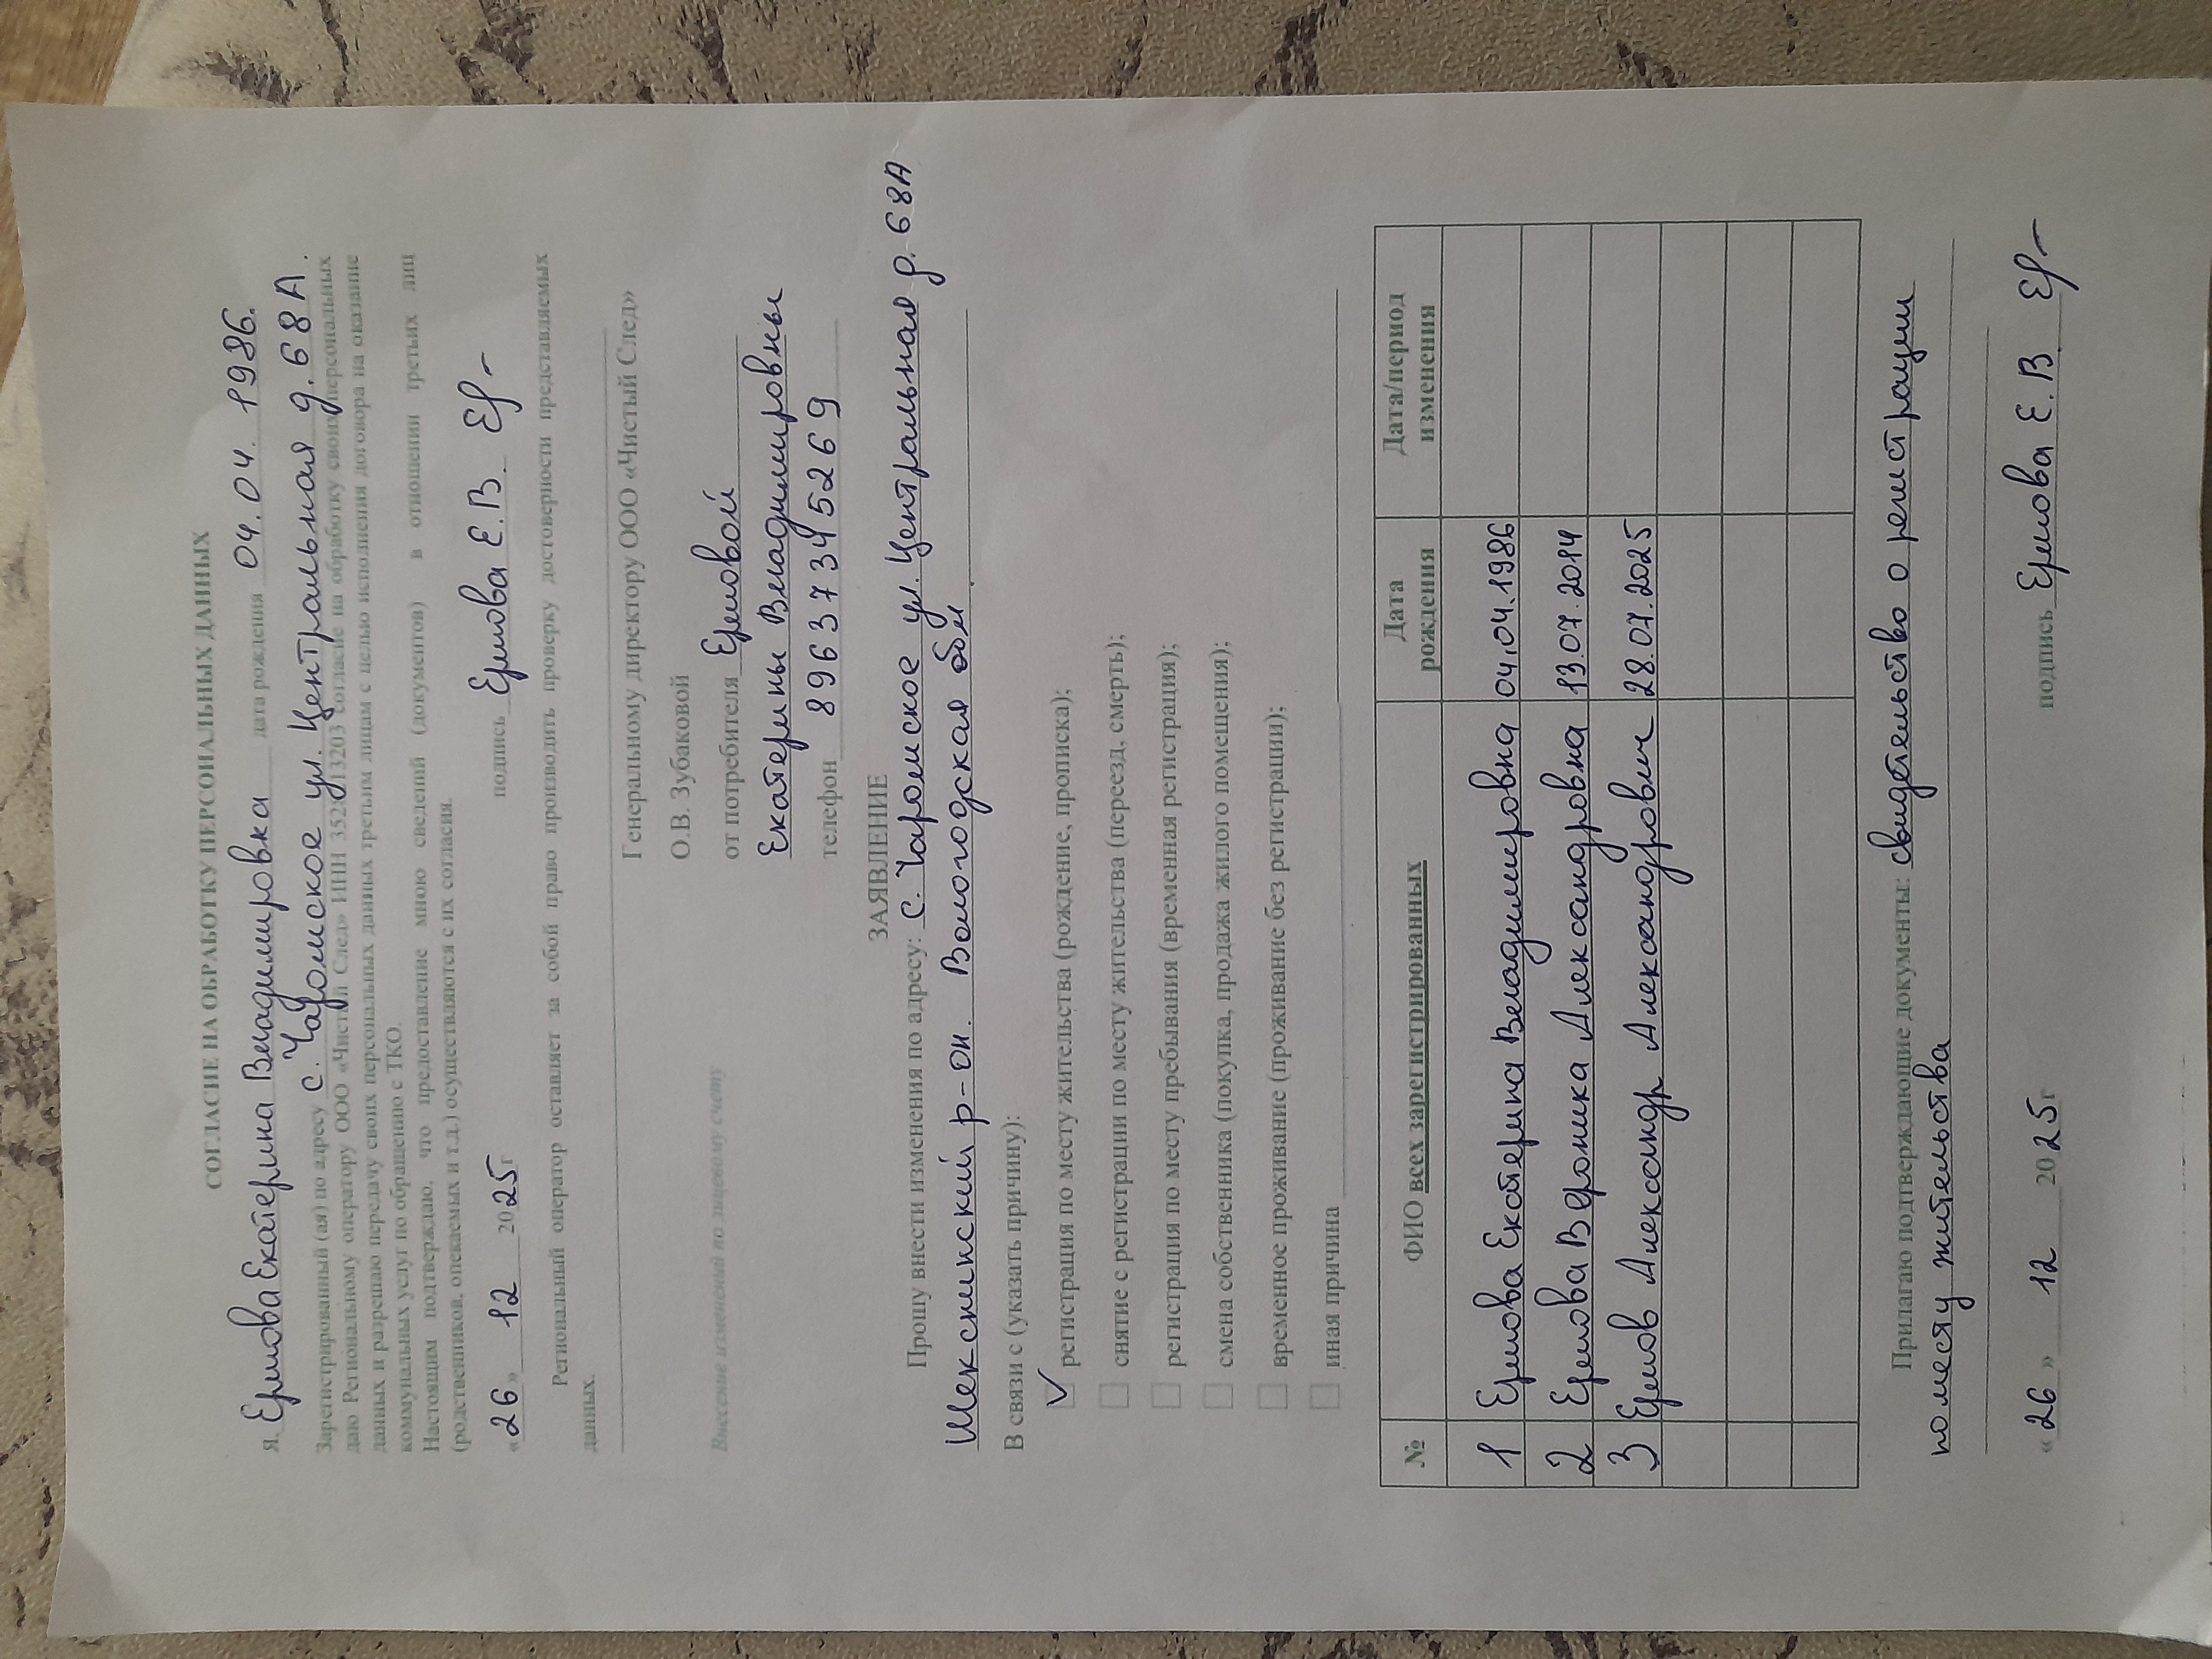 СОГЛАСИЕ НА ОБРАБОТКУ ПЕРСОНАЛЬНЫХ ДАННЫХ
Я, Ермова Екатерина Владимировна дата рождения 04.04.1986.
Зарегистрированный (ая) по адресу с. Чаромское ул. Центральная д. 68А.
даю Региональному оператору ООО «Чистый След» ИНН 3528213203 согласие на обработку своих персональных
данных и разрешаю передачу своих персональных данных третьим лицам с целью исполнения договора на оказание
коммунальных услуг по обращению с ТКО.
Настоящим подтверждаю, что предоставление мною сведений (документов) в отношении третьих лиц
(родственников, опекаемых и т.д.) осуществляются с их согласия.
«26» 12 2025г подпись Ермова Е.В.
Региональный оператор оставляет за собой право производить проверку достоверности представляемых
данных.
Генеральному директору ООО «Чистый След»
О.В. Зубаковой
Внесение изменений по лицевому счету
от потребителя Ермовой
Екатерины Владимировны
телефон 89637345269
ЗАЯВЛЕНИЕ
Прошу внести изменения по адресу: с. Чаромское ул. Центральная д. 68А
Шекснинский р-он. Вологодская обл
В связи с (указать причину):
регистрация по месту жительства (рождение, прописка);
снятие с регистрации по месту жительства (переезд, смерть);
регистрация по месту пребывания (временная регистрация);
смена собственника (покупка, продажа жилого помещения);
временное проживание (проживание без регистрации);
иная причина
№ ФИО всех зарегистрированных Дата рождения Дата/период изменения
1 Ермова Екатерина Владимировна 04.04.1986
2 Ермова Вероника Александровна 13.07.2014
3 Ермов Александр Александрович 28.07.2025
Прилагаю подтверждающие документы: свидетельство о регистрации
по месту жительства
«26» 12 2025г подпись Ермова Е.В